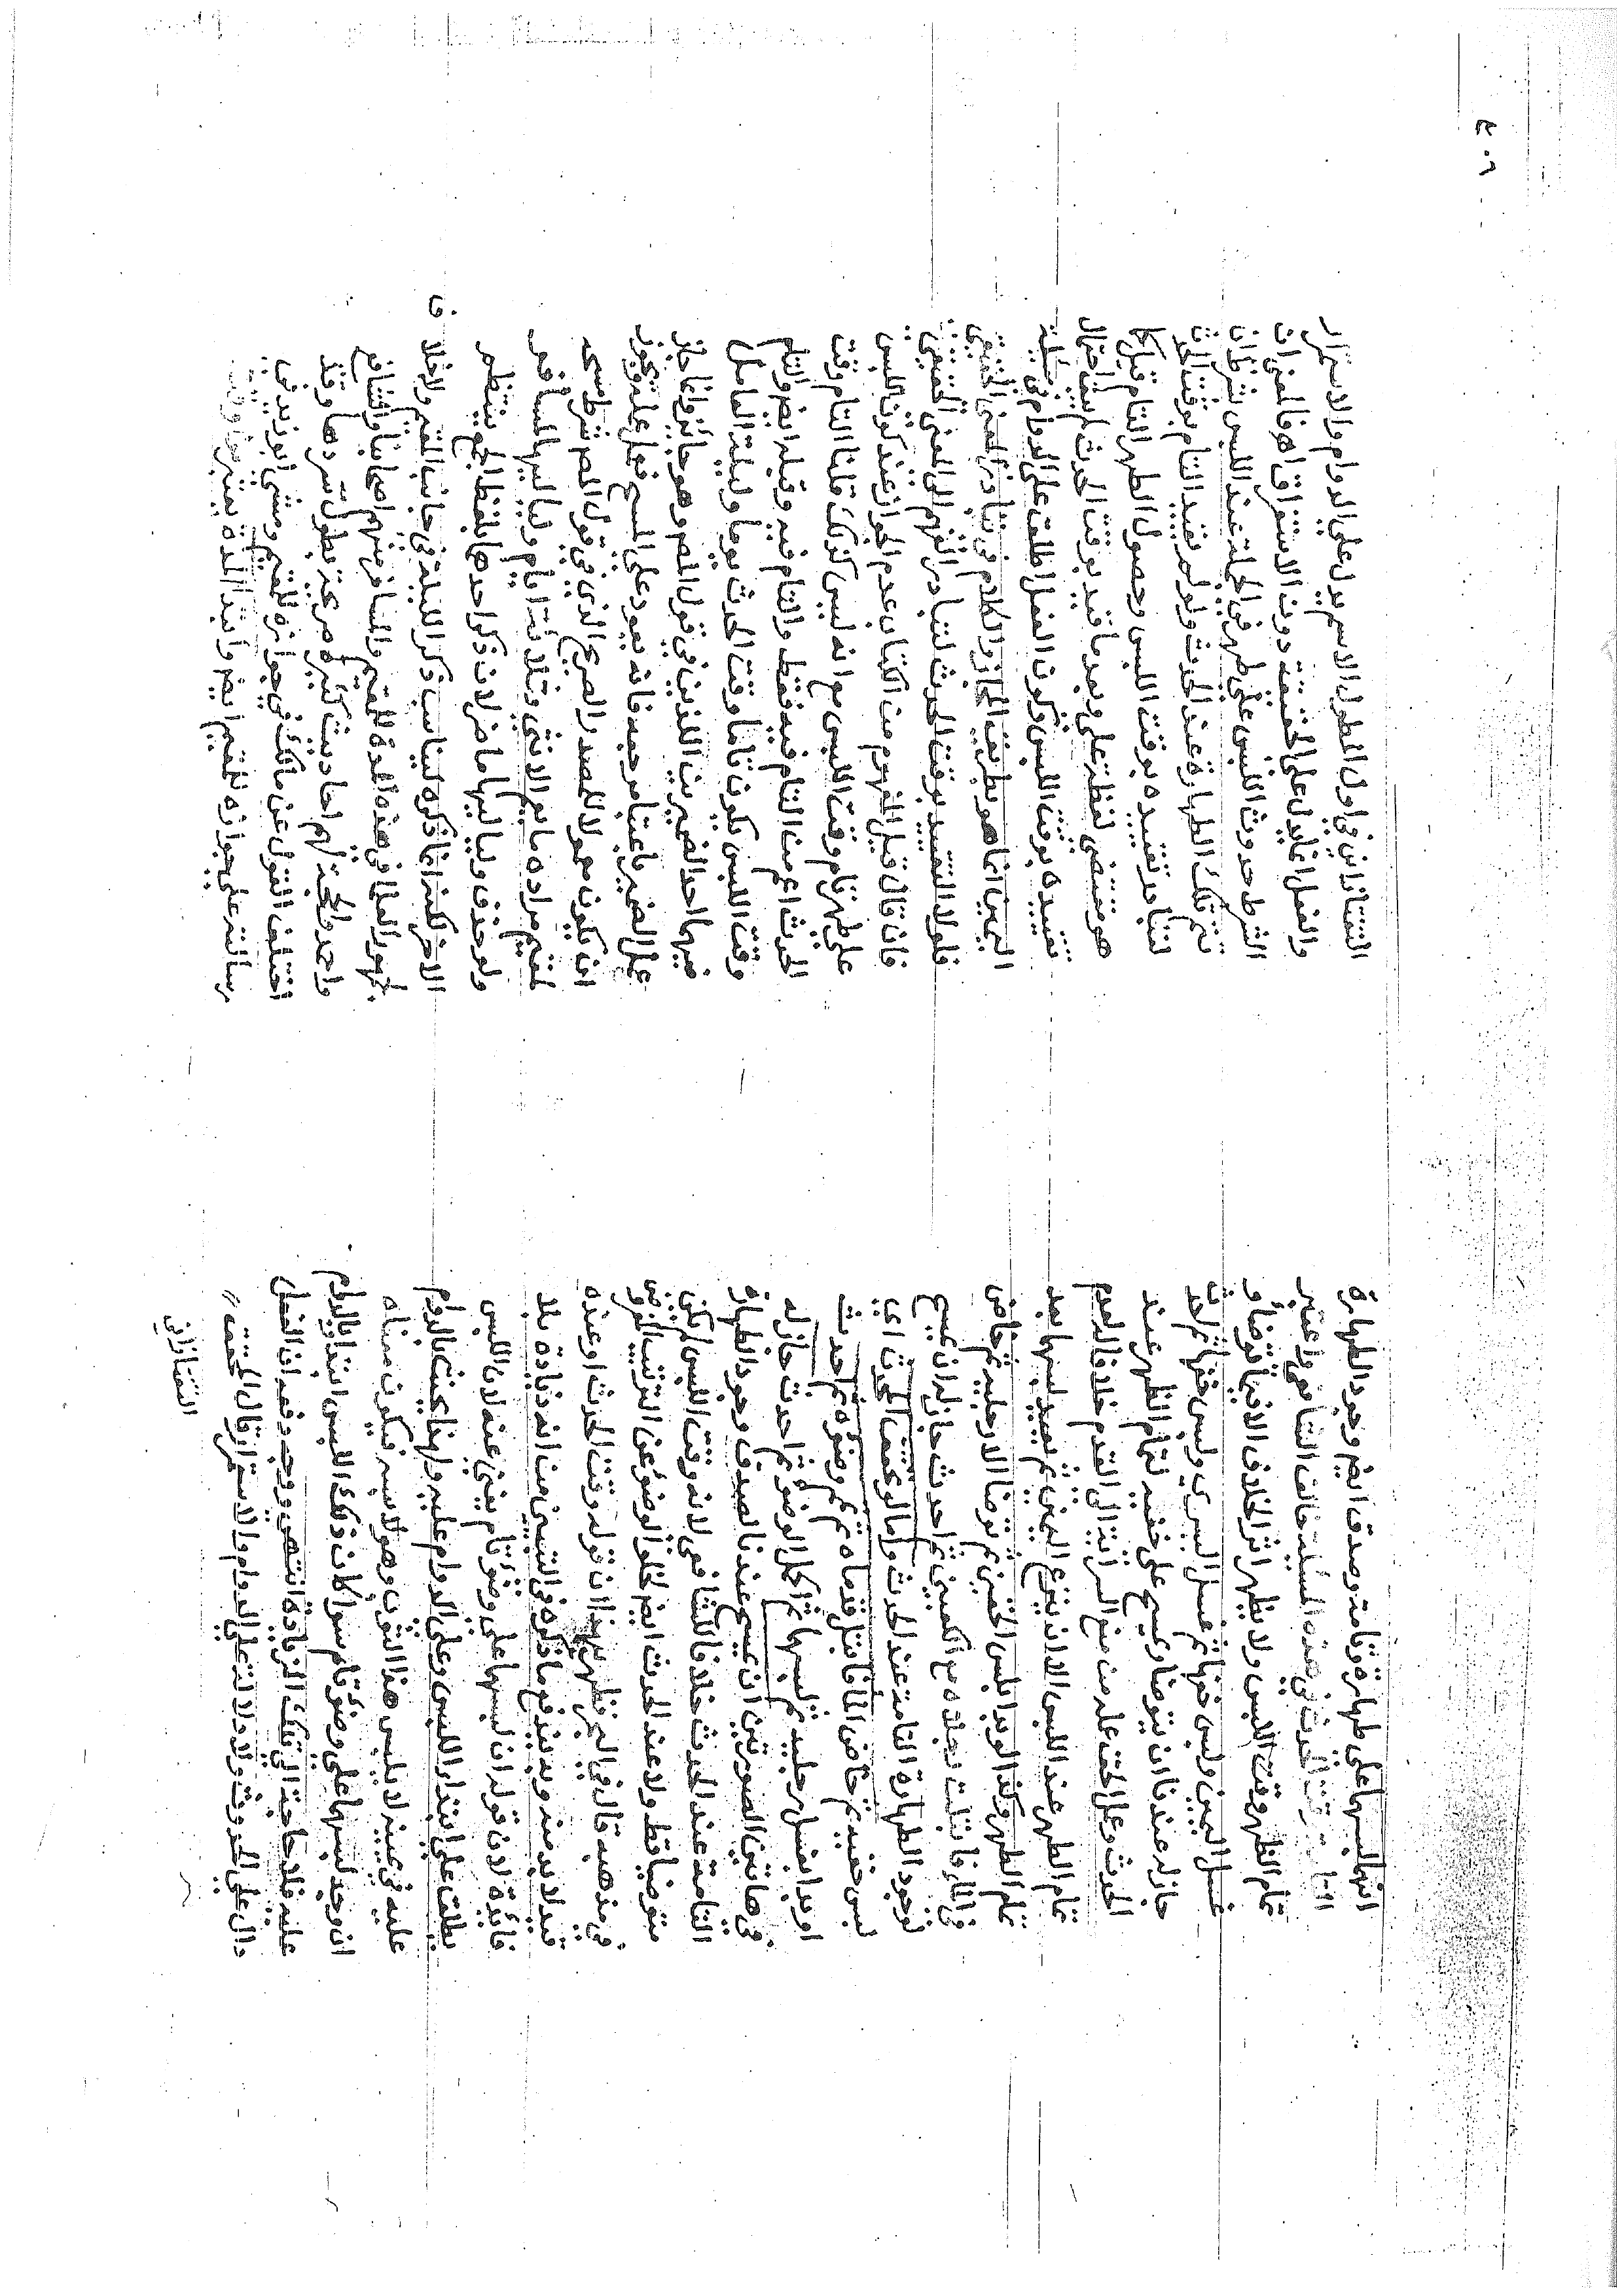 انها لبسها على طهارة وتامة وصدق ايضا وجود الطهارة
التامة وقت الحدث في هذه المسئلة خالف الشافعي واعتبر
تمام الطهر وقت اللبس ولا يظهر اثر الخلاف الا فيما توضأ و
غسل اليمين ولبس خفها ثم غسل اليسرى ولبس خفها ثم احدث
جاز له عندنا ان يتوضأ ويمسح على خفيه لتمام الطهر عند
الحدث
تمام الطهر عند اللبس الا ان ينزع اليمين ثم يعيد لبسها بعد
تمام الطهر وكذا لو بدأ بلبس الخفين ثم توضأ الا رجليه ثم خاض
في الماء فابتلت رجلاه مع الكعبين ثم احدث جاز له ان يمسح
لوجود الطهارة التامة عند الحدث
لبس خفيه ثم خاض الماء فابتل قدماه ثم تمم وضوءه ثم احدث
او بدأ بغسل رجليه ثم لبسها ثم اكمل الوضوء ثم احدث جاز له
في هاتين الصورتين ان يمسح عندنا لصدق وجود الطهارة
التامة عند الحدث خلافا للشافعي لانه وقت اللبس لم يكن
متوضيا قط ولا عند الحدث ايضا لخلو الوضوء عن الترتيب المفروض
في مذهبه قال في البحر فظهر بهذا ان قوله وقت الحدث
قيد لا بد منه وبه يندفع ما ذكره في التبيين من انه زيادة بلا
فائدة لان قوله ان لبسها على وضوء تام يغني عنه لان اللبس
يطلق على ابتداء اللبس وعلى الدوام عليه ولهذا يحنث بالدوام
عليه في يمينه لا يلبس هذا الثوب وهو لابسه فيكون معناه
ان وجد لبسها على وضوء تام سواء كان ذلك اللبس ابتداء او بالدوام
عليه فلا حاجة الى تلك الزيادة انتهى ووجه دفعه ان الفعل
دال على الحدوث ولا دلالة على الدوام والاستمرار قال المحقق
التفتازاني
التفتازاني في اول المطول الاسم يدل على الدوام والاستمرار
والفعل انما يدل على الحقيقة دون الاستغراق اهـ فالمعنى ان
الشرط حدوث اللبس على طهر في الجملة عند اللبس بشرط ان
تتم تلك الطهارة عند الحدث ولو لم يقيد التام بوقت الحدث
لتبادر تقييده بوقت اللبس وحصول الطهر التام قبله كما
هو مقتضى لفظة على وبعد ما قيد بوقت الحدث لم يبق احتمال
تقييده بوقت اللبس وكون الفعل اطلق على الدوام في مسئلة
اليمين انما هو بطريق المجاز والكلام في تبادر المعنى الحقيقي
فلولا التقييد بوقت الحدث لتبادر الفهم الى المعنى الحقيقي
فان قال قيل المفهوم من الكتاب عدم الجواز عند كون اللبس
على طهر تام وقت اللبس مع انه ليس كذلك قلنا التام وقت
الحدث اعم من التام فيه فقط والتام فيه وقبله ايضا والتام
وقت اللبس يكون تاما وقت الحدث يوما وليلة العامل
فيهما احد الضميرين اللذين في قول المص وهو جائز وانما جاز
عمل الضمير باعتبار مرجعه فانه يعود على المسح فعمل عمله ويجوز
ان يكون معمولا للمصدر الصريح الذي في قول المص شرط مسحه
لمقيم مراده ما يعم الانثى وثلاثة ايام ولياليها لمسافر
ولو حذف ولياليها ما ضر لان ذكر احدهما بلفظ الجمع ينتظم
الآخر لكنه انما ذكره ليناسب ذكر الليلة في جانب المقيم ولا خلاف
لجمهور العلماء في هذه المدة للمقيم والمسافر منهم اصحابنا والشافعي
واحمد والحجة لهم احاديث كثيرة صريحة يطول سردها وقد
اختلف القول عن مالك في جوازه للمقيم ومشى ابو زيد في
رسالته على جوازه للمقيم ايضا وابتداء المدة يعتبر من وقت